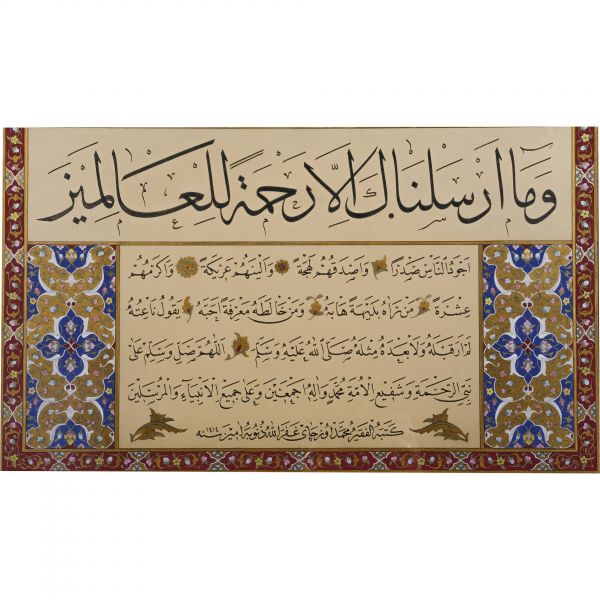 وَمَا اَرْسَلْنَاكَ اِلَّا رَحْمَةً لِلْعَالَمِينَ
اَجْوَدُ النَّاسِ صَدْرًا وَاَصْدَقُهُمْ لَهْجَةً وَاَلْيَنُهُمْ عَرِيكَةً وَاَكْرَمُهُمْ
عِشْرَةً مَنْ رَاٰهُ بَدِيهَةً هَابَهُ وَمَنْ خَالَطَهُ مَعْرِفَةً اَحَبَّهُ يَقُولُ نَاعِتُهُ
لَمْ اَرَ قَبْلَهُ وَلَا بَعْدَهُ مِثْلَهُ صَلَّى اللّٰهُ عَلَيْهِ وَسَلَّمَ اَللّٰهُمَّ صَلِّ وَسَلِّمْ عَلٰى
نَبِيِّ الرَّحْمَةِ وَشَفِيعِ الْاُمَّةِ مُحَمَّدٍ وَاٰلِهِ اَجْمَعِينَ وَعَلٰى جَمِيعِ الْاَنْبِيَاءِ وَالْمُرْسَلِينَ
كتبه الفقير محمد اوزچاى غفر الله ذنوبه امين سنه ١٤١٤